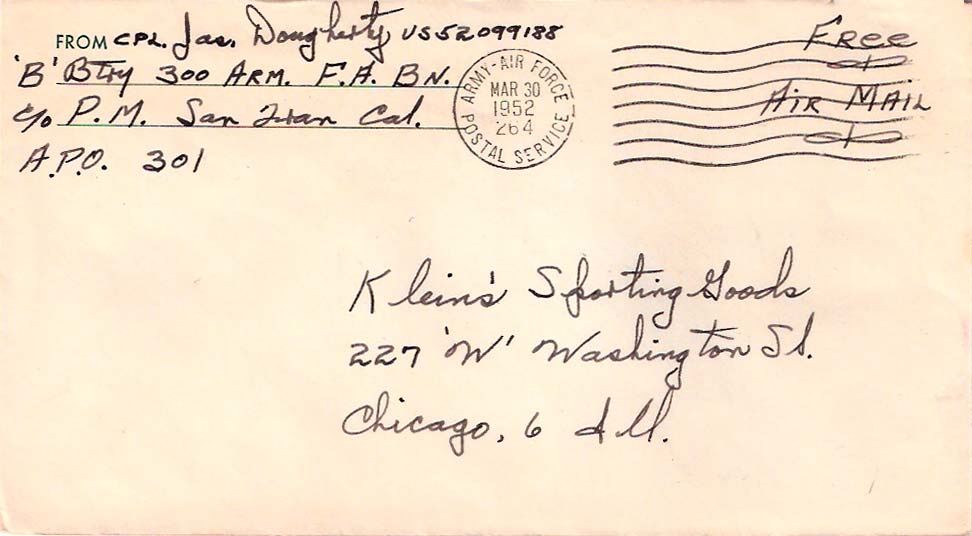 FROM CPL. Jas. Dougherty US52099188
'B' Btry 300 ARM. F.A. BN.
c/o P.M. San Fran Cal.
A.P.O. 301
ARMY-AIR FORCE
MAR 30
1952
264
POSTAL SERVICE
FREE
AIR MAIL
Klein's Sporting Goods
227 'W' Washington St.
Chicago, 6 Ill.